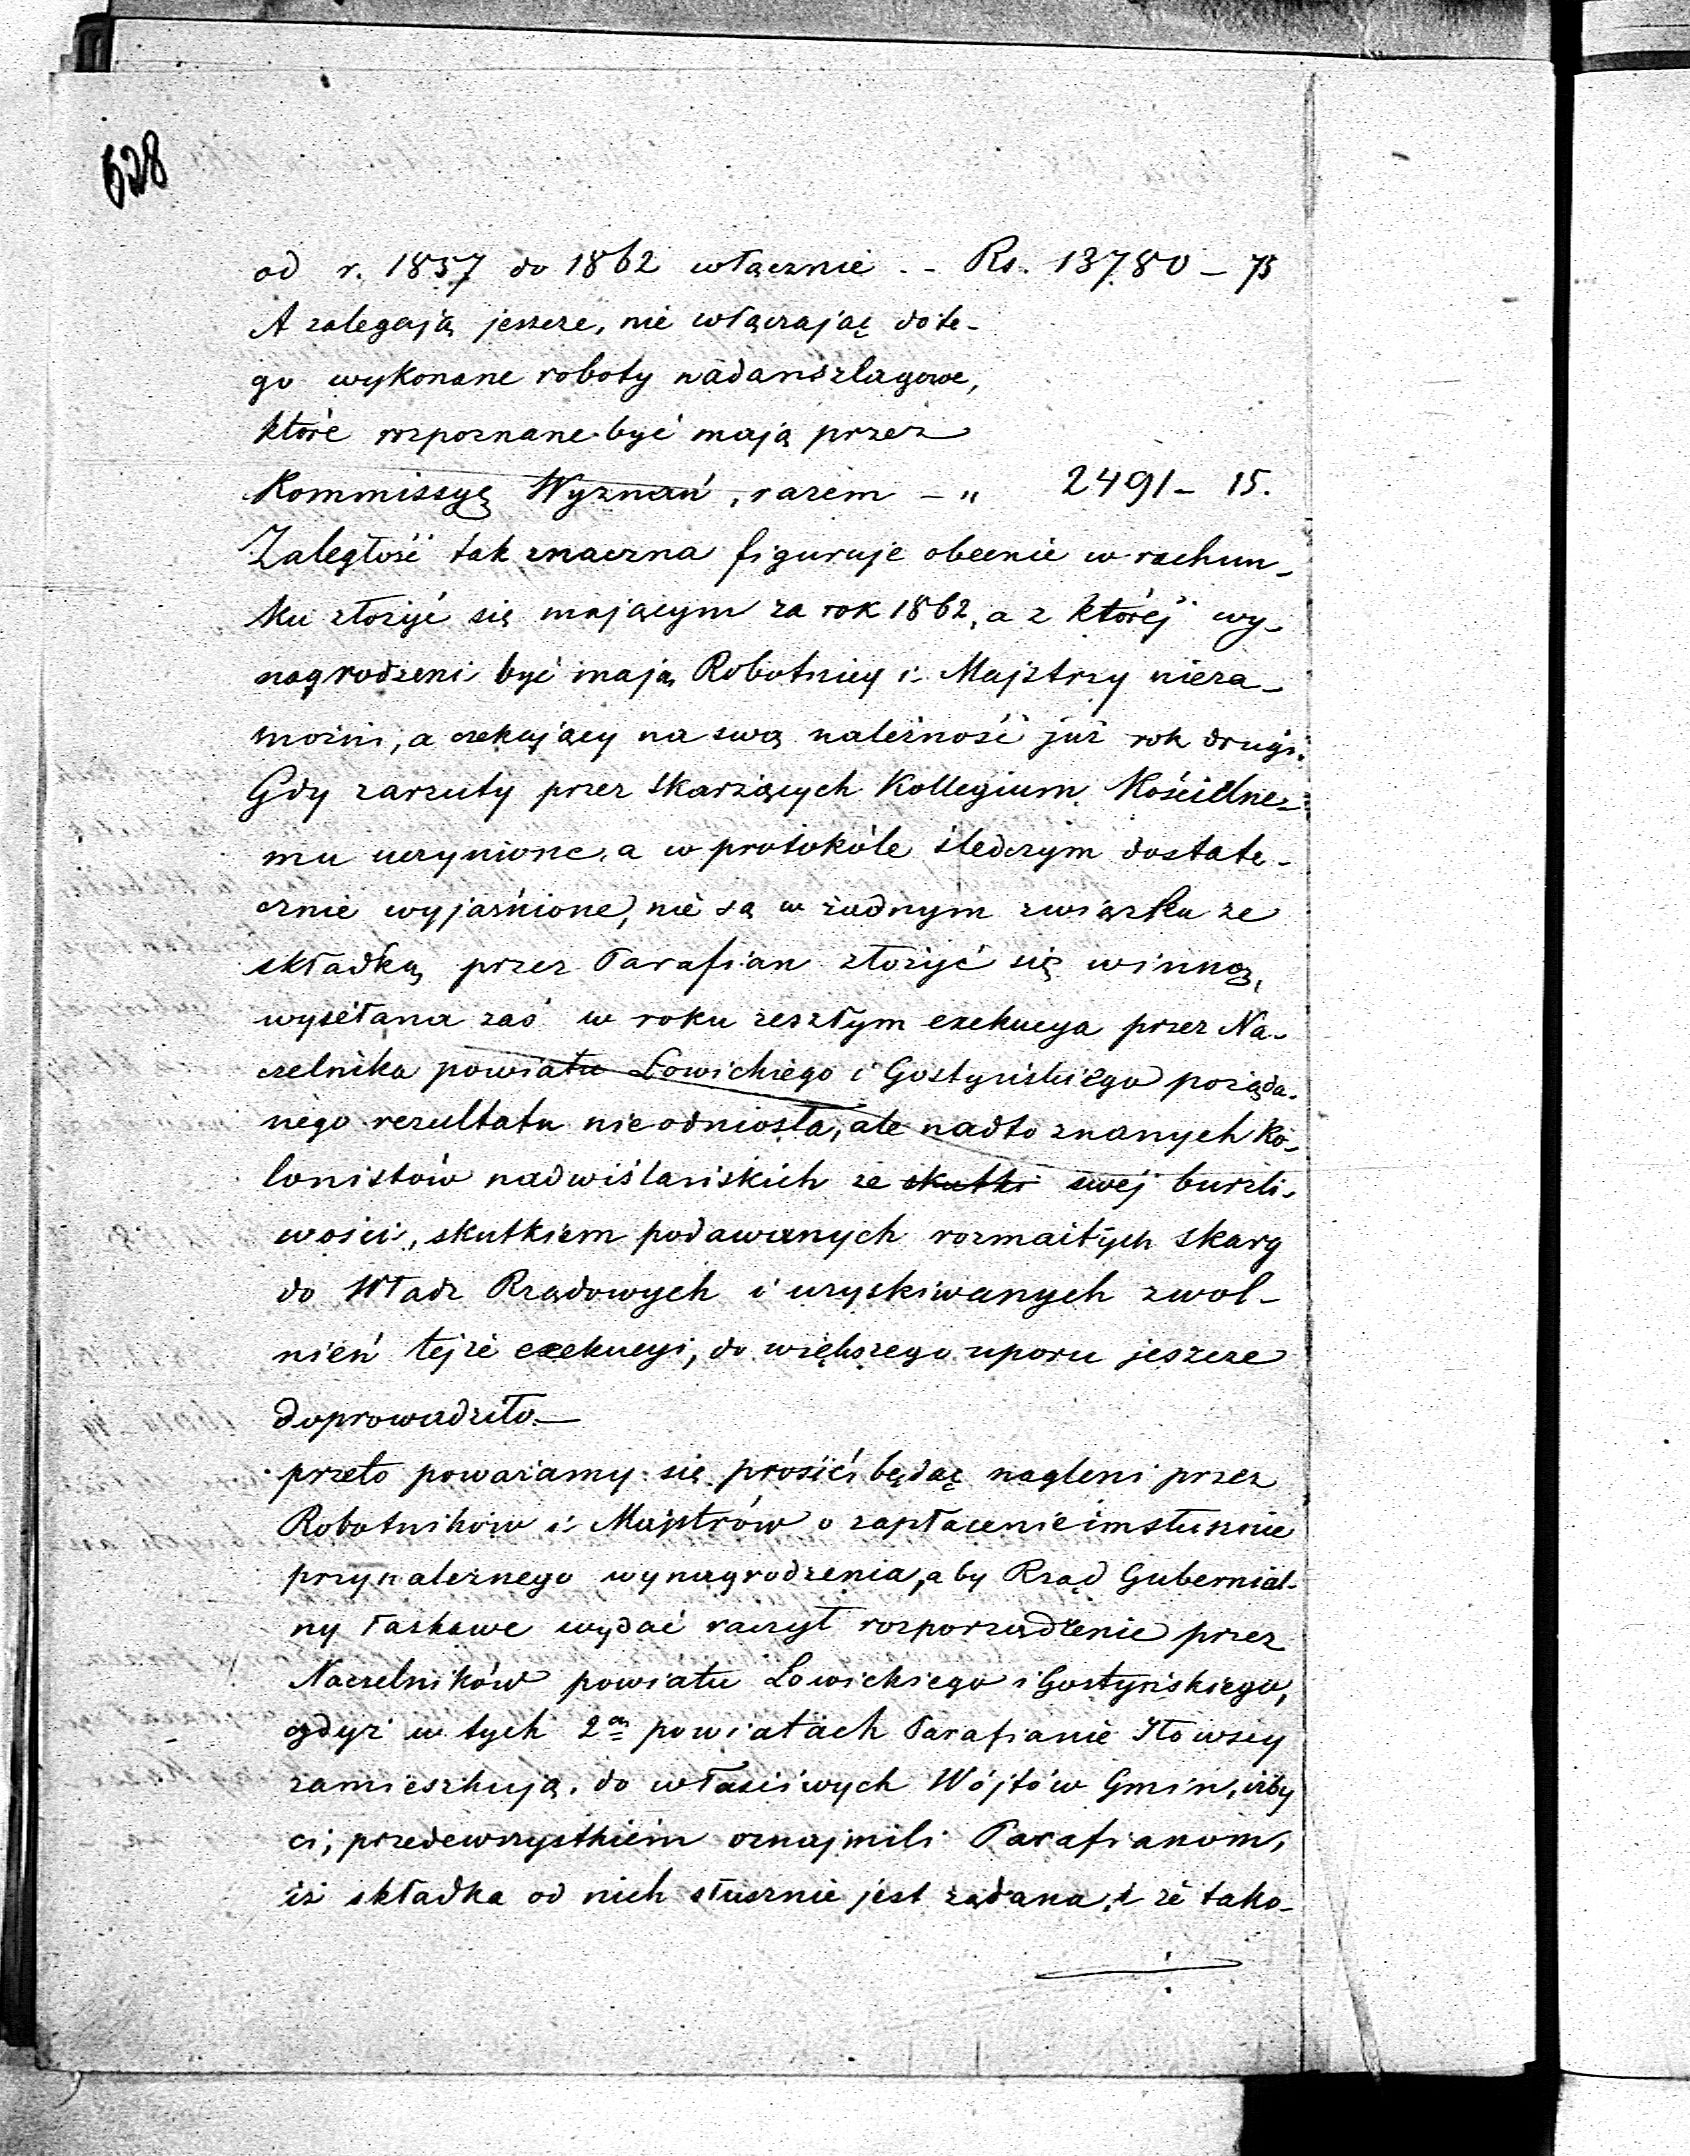 628
od r. 1857 do 1862 włącznie - - Rs. 13780 - 75
A zalegają jeszcze, nie włączając do te-
go wykonane roboty nadanszlagowe,
które rozpoznane być mają przez
Kommissyą Wyznań, razem - " 2491 - 15.
Zaległość tak znaczna figuruje obecnie w rachun-
ku złożyć się mającym za rok 1862, a z której wy-
nagrodzeni być mają Robotnicy i Majstrzy nieza-
możni, a czekający na swą należność już rok drugi.
Gdy zarzuty przez skarżących Kollegium Kościelne-
mu uczynione, a w protokóle śledczym dostate-
cznie wyjaśnione, nie są w żadnym związku ze
składką przez Parafian złożyć się winną,
wysełana zaś w roku zeszłym exekucya przez Na-
czelnika powiatu Łowickiego i Gostyńskiego pożąda-
nego rezultatu nie odniosła, ale nadto znanych Ko-
lonistów nadwiślańskich ze skutki swéj burzli-
wości, skutkiem podawanych rozmaitych skarg
do Władz Rządowych i uzyskiwanych zwol-
nień tejże exekucyi, do większego uporu jeszcze
doprowadziło. —
przeto poważamy się prosić, będąc nagleni przez
Robotników i Majstrów o zapłacenie im słusznie
przynależnego wynagrodzenia, aby Rząd Gubernial-
ny łaskawe wydać raczył rozporządzenie przez
Naczelników powiatu Łowickiego i Gostyńskiego,
gdyż w tych 2ch powiatach Parafianie Iłowscy
zamieszkują, do właściwych Wójtów Gmin, iżby
ci, przedewszystkiem oznajmili Parafianom,
iż składka od nich słusznie jest żądana, i że tako-